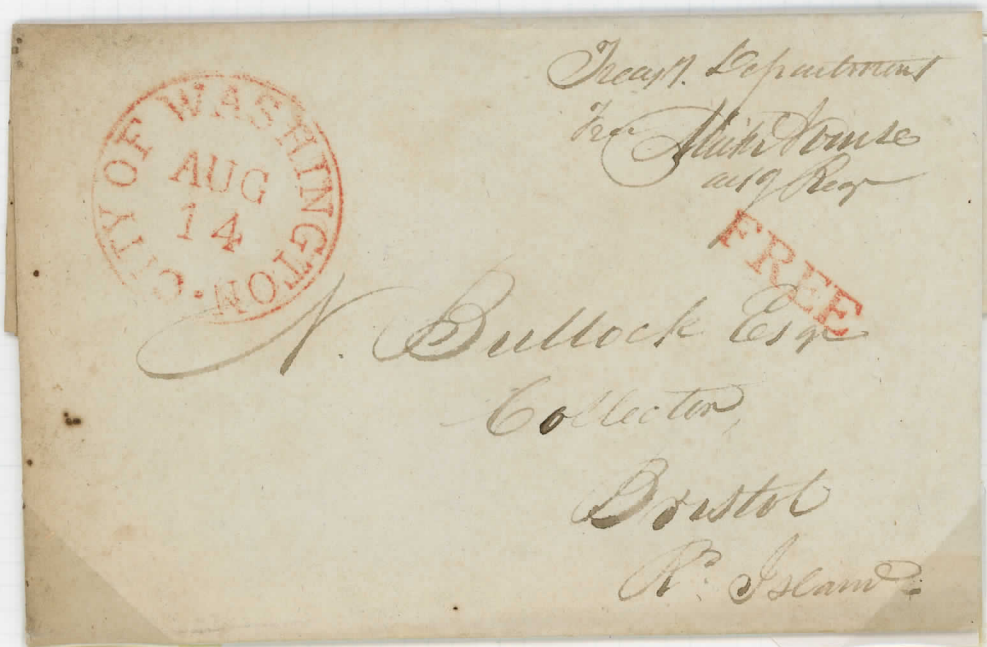 CITY OF WASHINGTON.
AUG
14
Treasy. Department
Free
actg Regr
FREE
N. Bullock Esqr
Collector,
Bristol
Rd. Island